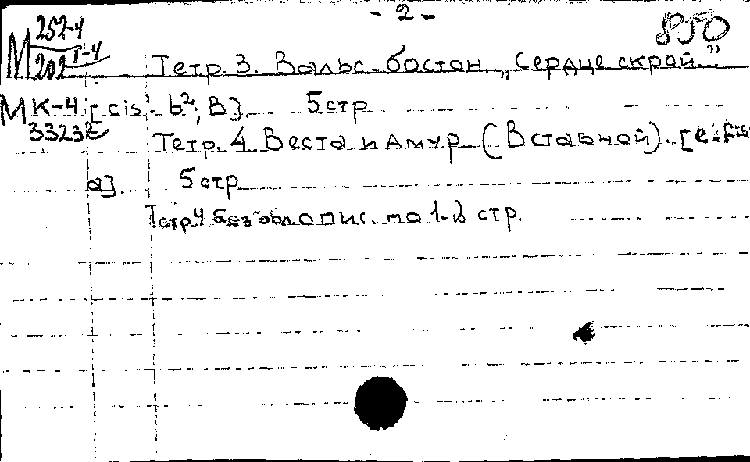 - 2 -
М 257-4 850
202 I-4
Тетр. 3. Вальс-бостон „Сердце скрой"
М К-4 [cis¹- b², B]. 5 стр
33232
Тетр. 4 Веста и Амур (Вставной). [e¹-
a]. 5 стр
Тетр. 4 без обл опис. по 1-й стр.